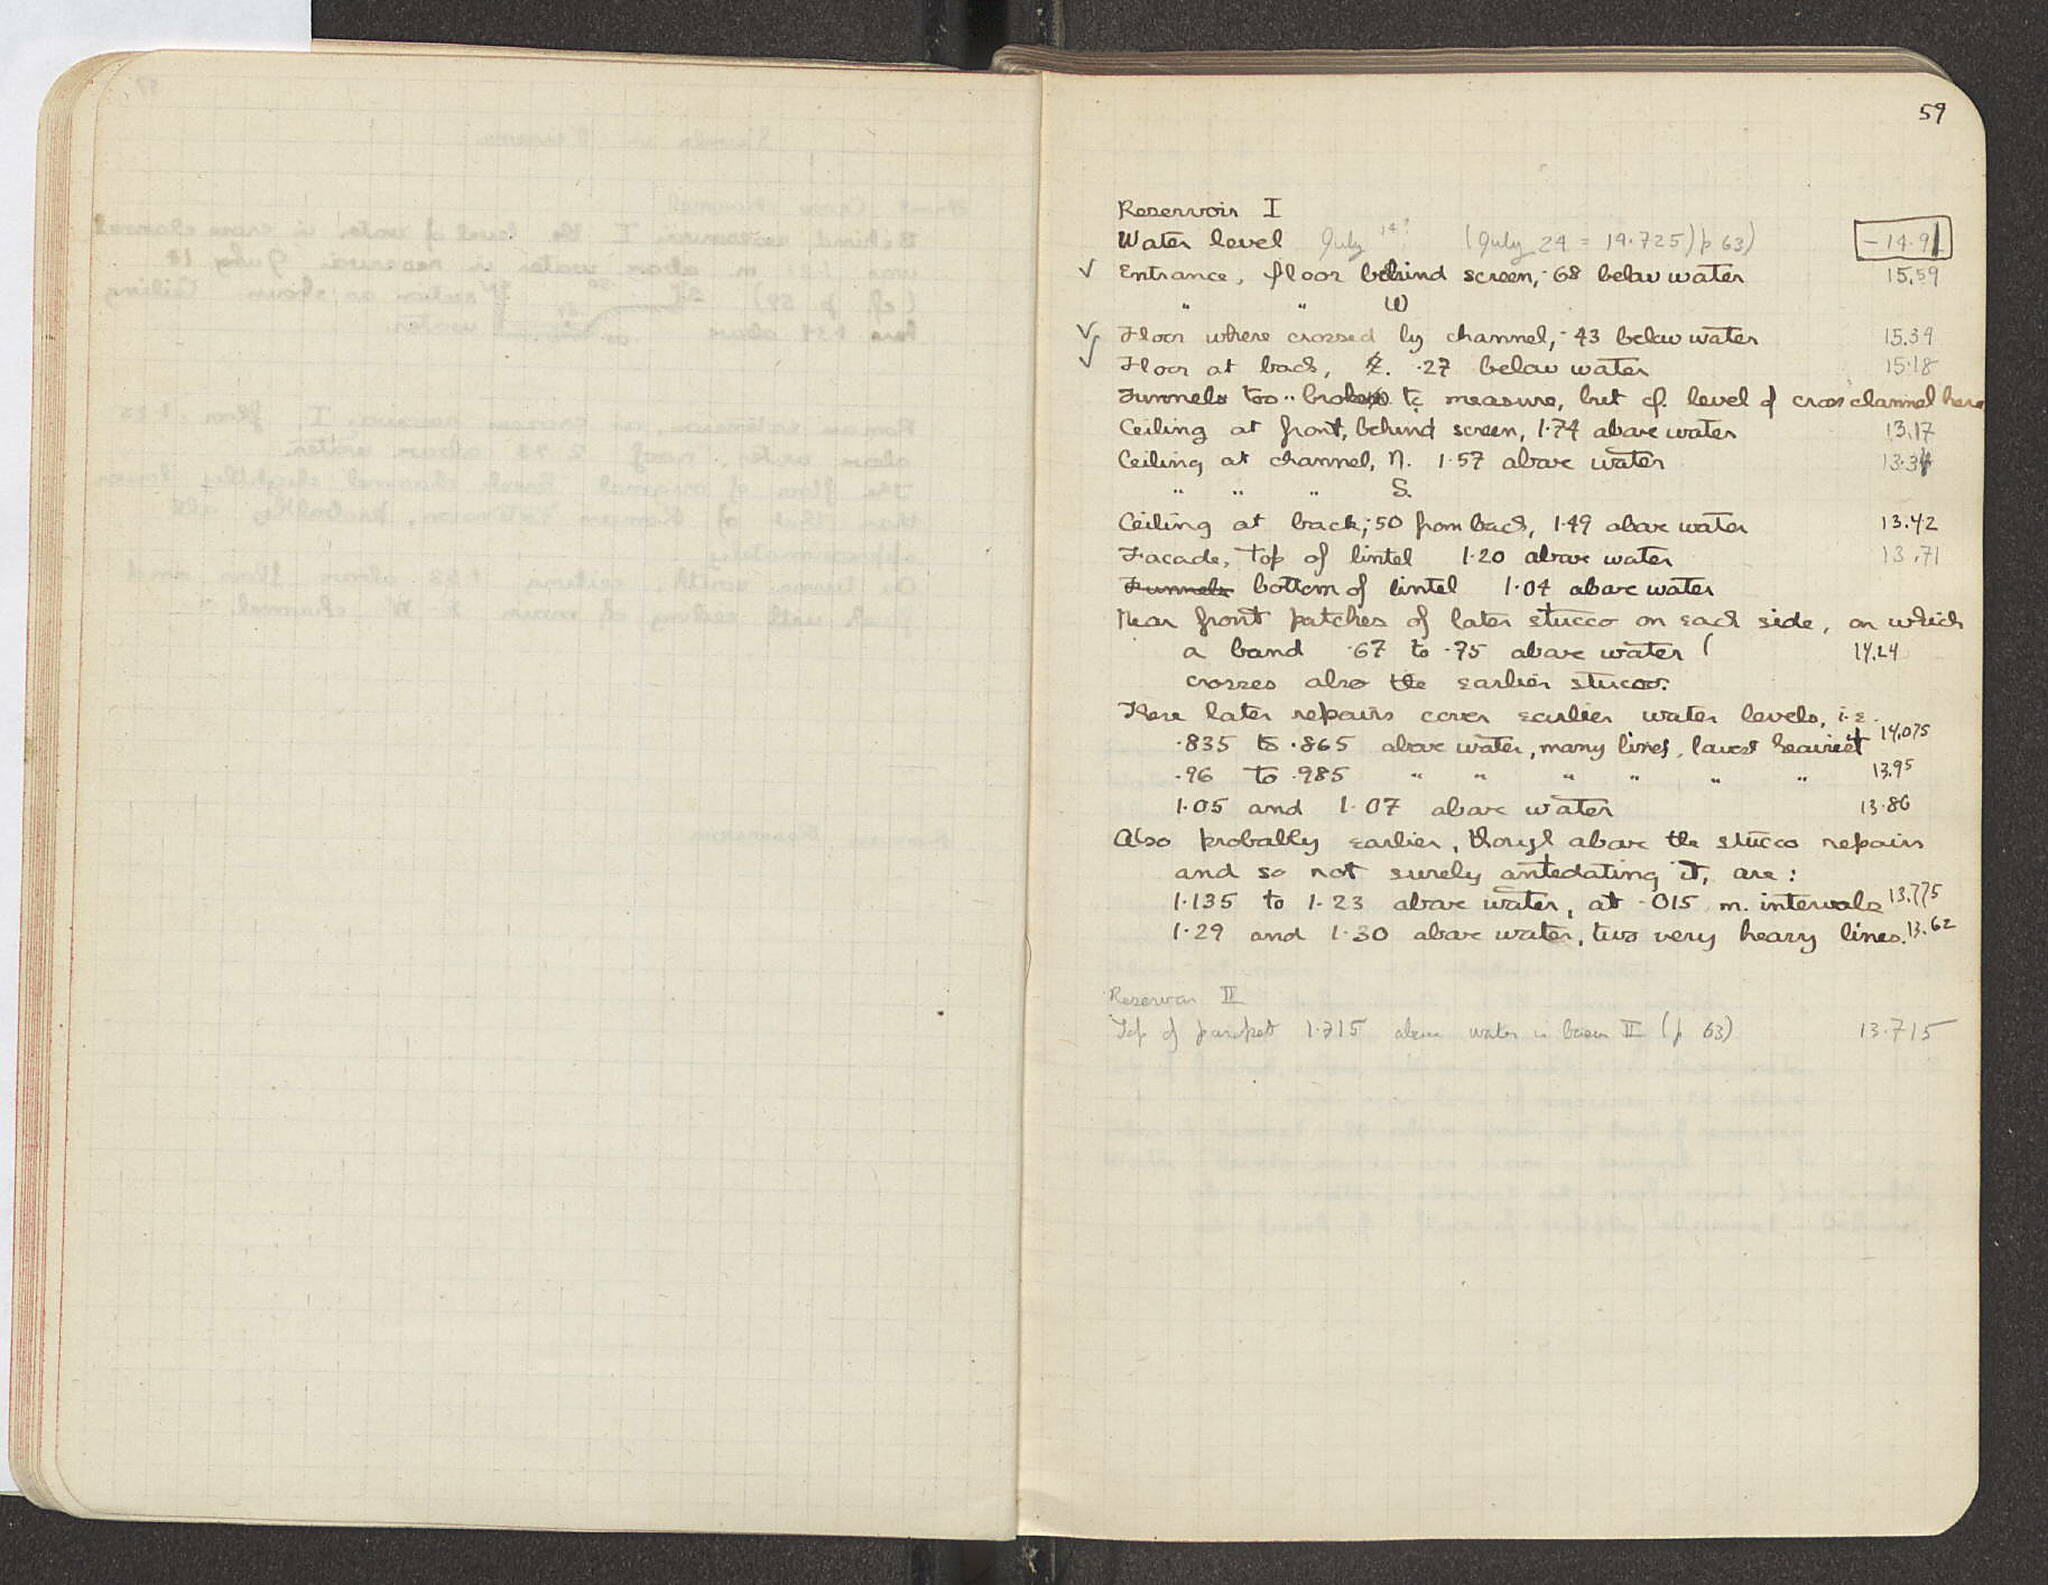 59
Reservoir I
Water level July 14? (July 24 = 14.725) p 63) -14.91
✓ Entrance, floor behind screen, .68 below water 15.59
" " W
✓ Floor where crossed by channel, .43 below water 15.34
✓ Floor at back, .27 below water 15.18
Funnels too broken to measure, but cf. level of cross channel here
Ceiling at front, behind screen, 1.74 above water 13.17
Ceiling at channel, N. 1.57 above water 13.34
" " " S.
Ceiling at back, .50 from back, 1.49 above water 13.42
Facade, top of lintel 1.20 above water 13.71
Funnels bottom of lintel 1.04 above water
Near front patches of later stucco on each side, on which
a band .67 to .75 above water ( 14.24
crosses also the earlier stucco.
These later repairs cover earlier water levels, i.e.
.835 to .865 above water, many lines, lowest heaviest 14.075
.96 to .985 " " " " " " 13.95
1.05 and 1.07 above water 13.86
Also probably earlier, though above the stucco repairs
and so not surely antedating it, are:
1.135 to 1.23 above water, at .015 m. intervals 13.775
1.29 and 1.30 above water, two very heavy lines. 13.62
Reservoir II
Top of parapet 1.215 above water in basin II (p 63) 13.715